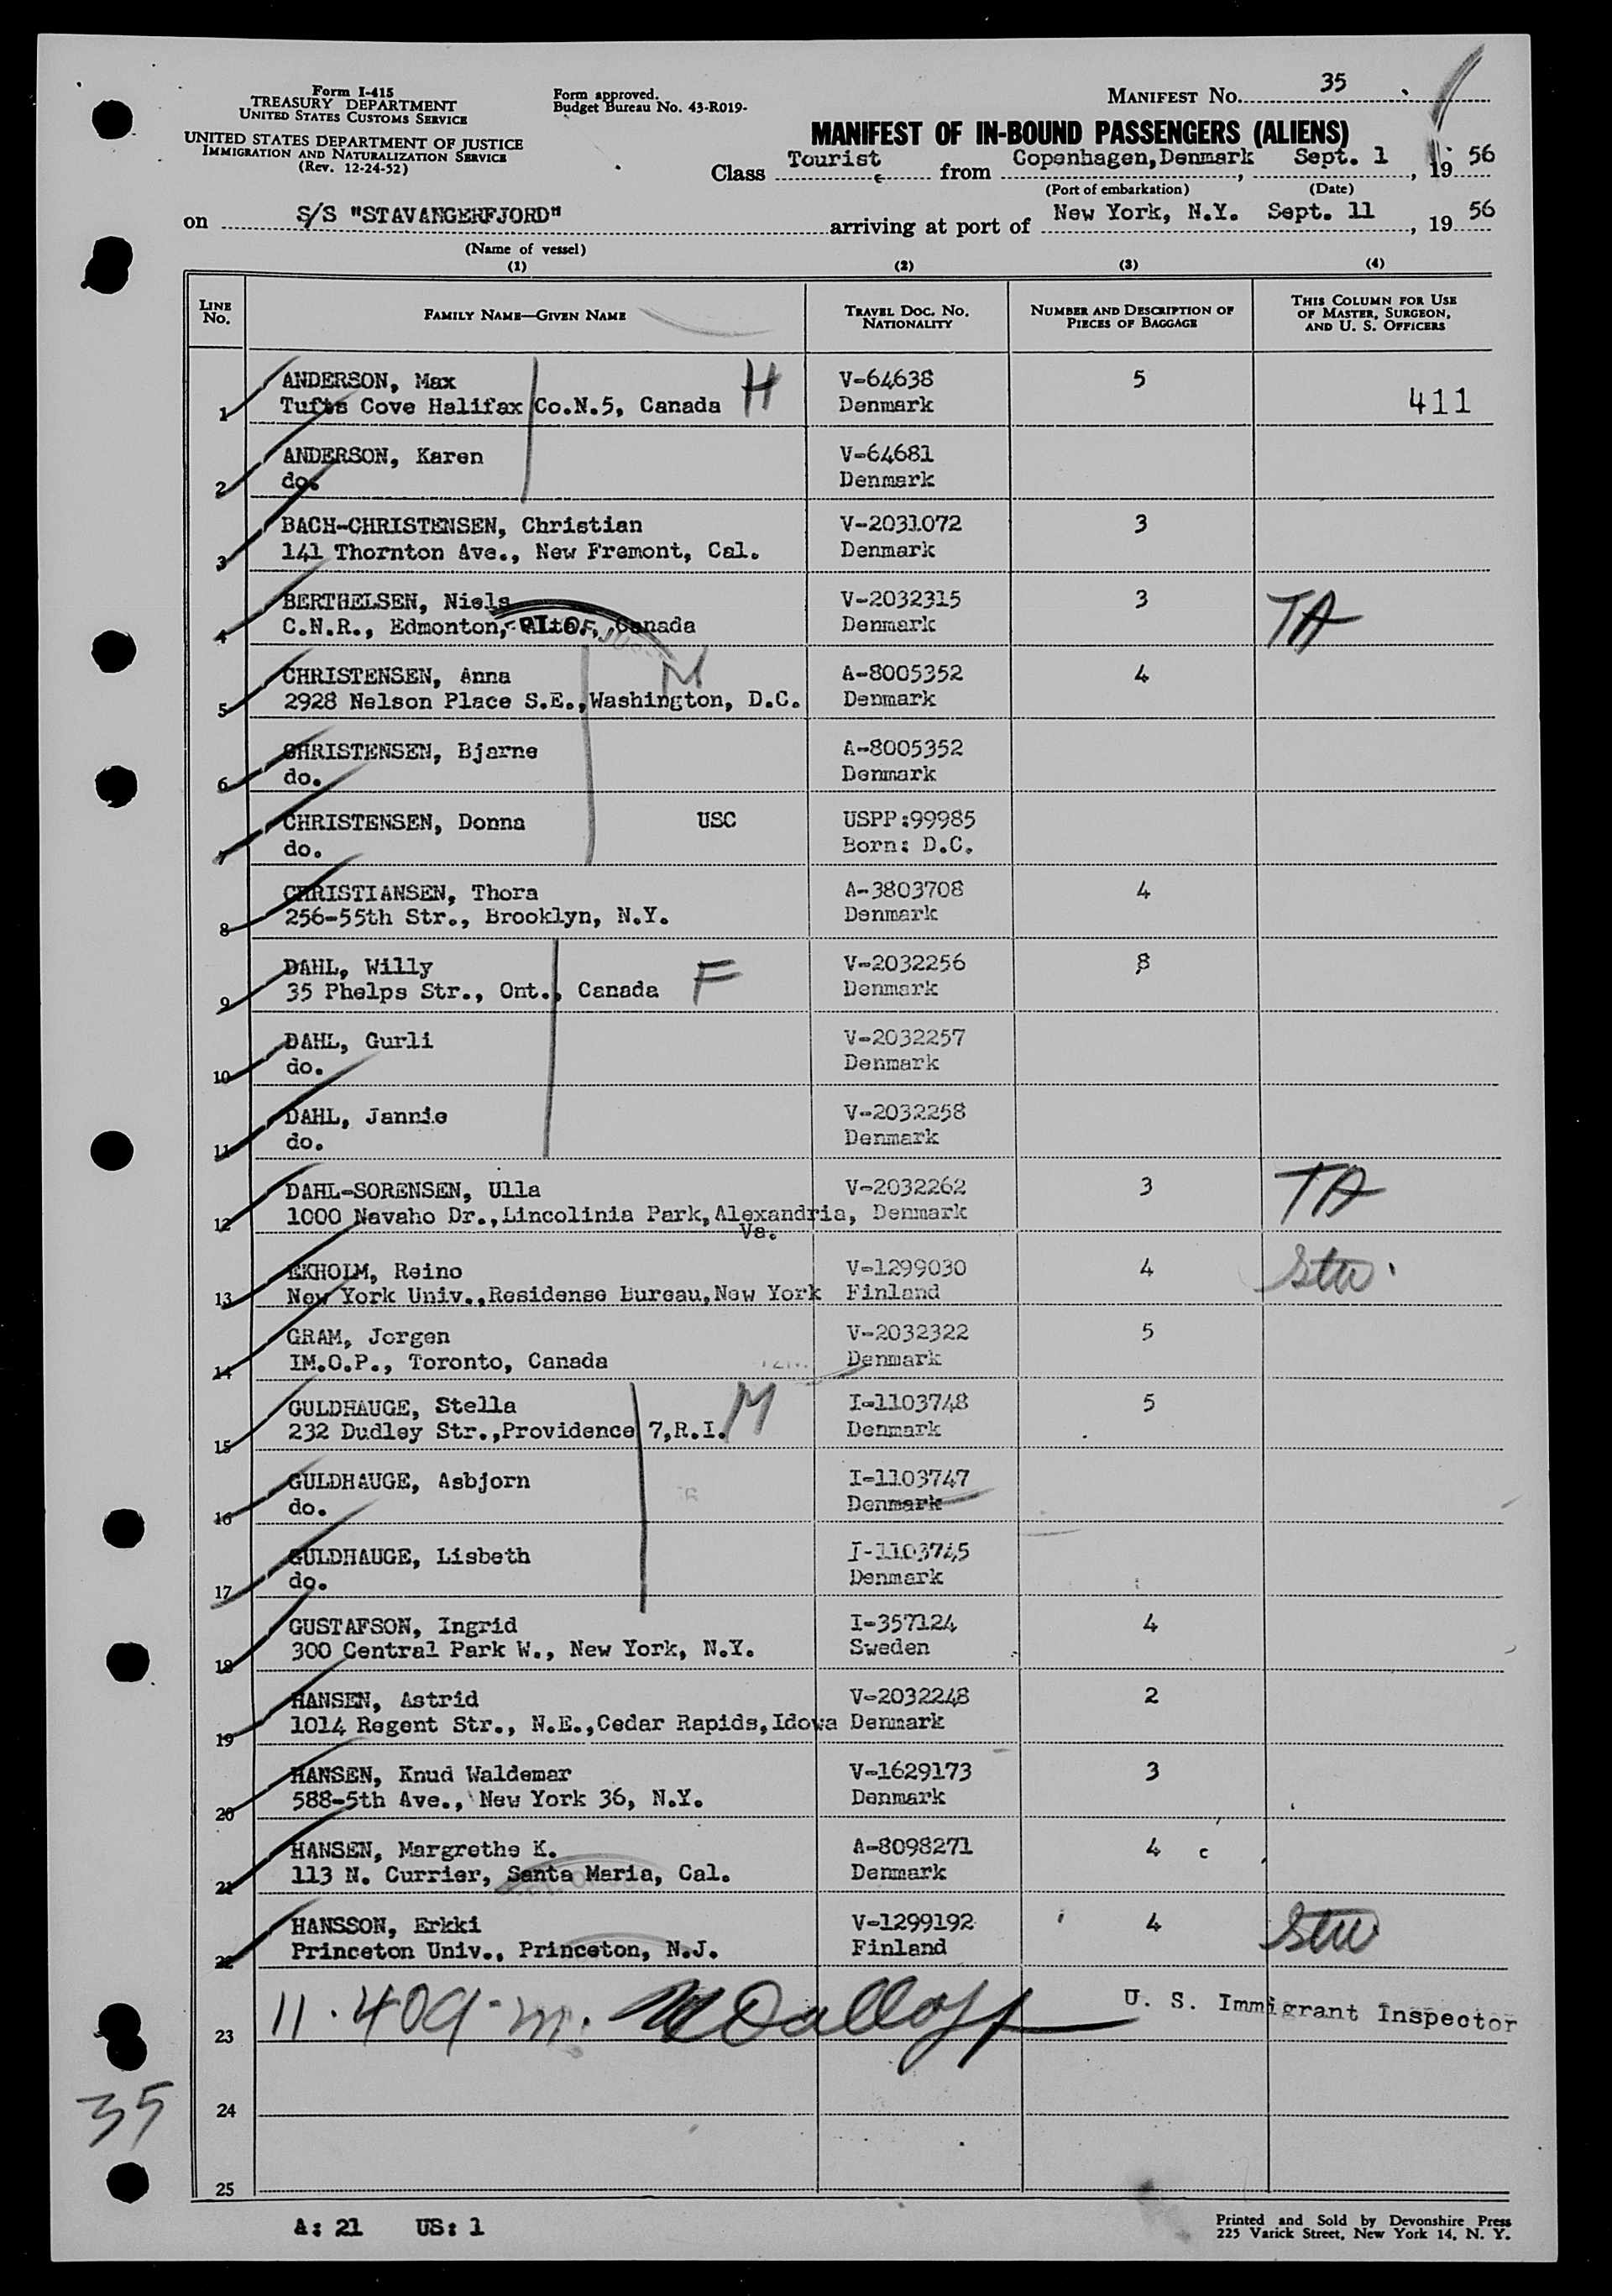 Form I-415
TREASURY DEPARTMENT
UNITED STATES CUSTOMS SERVICE
UNITED STATES DEPARTMENT OF JUSTICE
IMMIGRATION AND NATURALIZATION SERVICE
(Rev. 12-24-52)
Form approved.
Budget Bureau No. 43-R019-
MANIFEST No. 35
MANIFEST OF IN-BOUND PASSENGERS (ALIENS)
Class Tourist from Copenhagen, Denmark, Sept. 1, 1956
(Port of embarkation) (Date)
on S/S "STAVANGERFJORD" arriving at port of New York, N.Y. Sept. 11, 1956
(Name of vessel)
(1) (2) (3) (4)
LINE No. FAMILY NAME—GIVEN NAME TRAVEL DOC. NO. NATIONALITY NUMBER AND DESCRIPTION OF PIECES OF BAGGAGE THIS COLUMN FOR USE OF MASTER, SURGEON, AND U. S. OFFICERS
ANDERSON, Max H V-64638 5
1 Tufts Cove Halifax Co.N.5, Canada Denmark 411
ANDERSON, Karen V-64681
2 do. Denmark
BACH-CHRISTENSEN, Christian V-2031072 3
3 141 Thornton Ave., New Fremont, Cal. Denmark
BERTHELSEN, Niels V-2032315 3 TA
4 C.N.R., Edmonton, Alto., Canada Denmark
CHRISTENSEN, Anna M A-8005352 4
5 2928 Nelson Place S.E., Washington, D.C. Denmark
CHRISTENSEN, Bjarne A-8005352
6 do. Denmark
CHRISTENSEN, Donna USC USPP:99985
7 do. Born: D.C.
CHRISTIANSEN, Thora A-3803708 4
8 256-55th Str., Brooklyn, N.Y. Denmark
DAHL, Willy F V-2032256 8
9 35 Phelps Str., Ont., Canada Denmark
DAHL, Gurli V-2032257
10 do. Denmark
DAHL, Jannie V-2032258
11 do. Denmark
DAHL-SORENSEN, Ulla V-2032262 3 TA
12 1000 Navaho Dr.,Lincolinia Park,Alexandria, Denmark
Va.
EKHOLM, Reino V-1299030 4 Stu.
13 New York Univ.,Residense Bureau,New York Finland
GRAM, Jorgen V-2032322 5
14 IM.O.P., Toronto, Canada Denmark
GULDHAUGE, Stella M I-1103748 5
15 232 Dudley Str.,Providence 7,R.I. Denmark
GULDHAUGE, Asbjorn I-1103747
16 do. Denmark
GULDHAUGE, Lisbeth I-1103745
17 do. Denmark
GUSTAFSON, Ingrid I-357124 4
18 300 Central Park W., New York, N.Y. Sweden
HANSEN, Astrid V-2032248 2
19 1014 Regent Str., N.E.,Cedar Rapids,Idowa Denmark
HANSEN, Knud Waldemar V-1629173 3
20 588-5th Ave., New York 36, N.Y. Denmark
HANSEN, Margrethe K. A-8098271 4 c
21 113 N. Currier, Santa Maria, Cal. Denmark
HANSSON, Erkki V-1299192 4 Stu
22 Princeton Univ., Princeton, N.J. Finland
23 11.40 a.m. U. S. Immigrant Inspector
24
35
25
A: 21 US: 1
Printed and Sold by Devonshire Press
225 Varick Street, New York 14, N. Y.